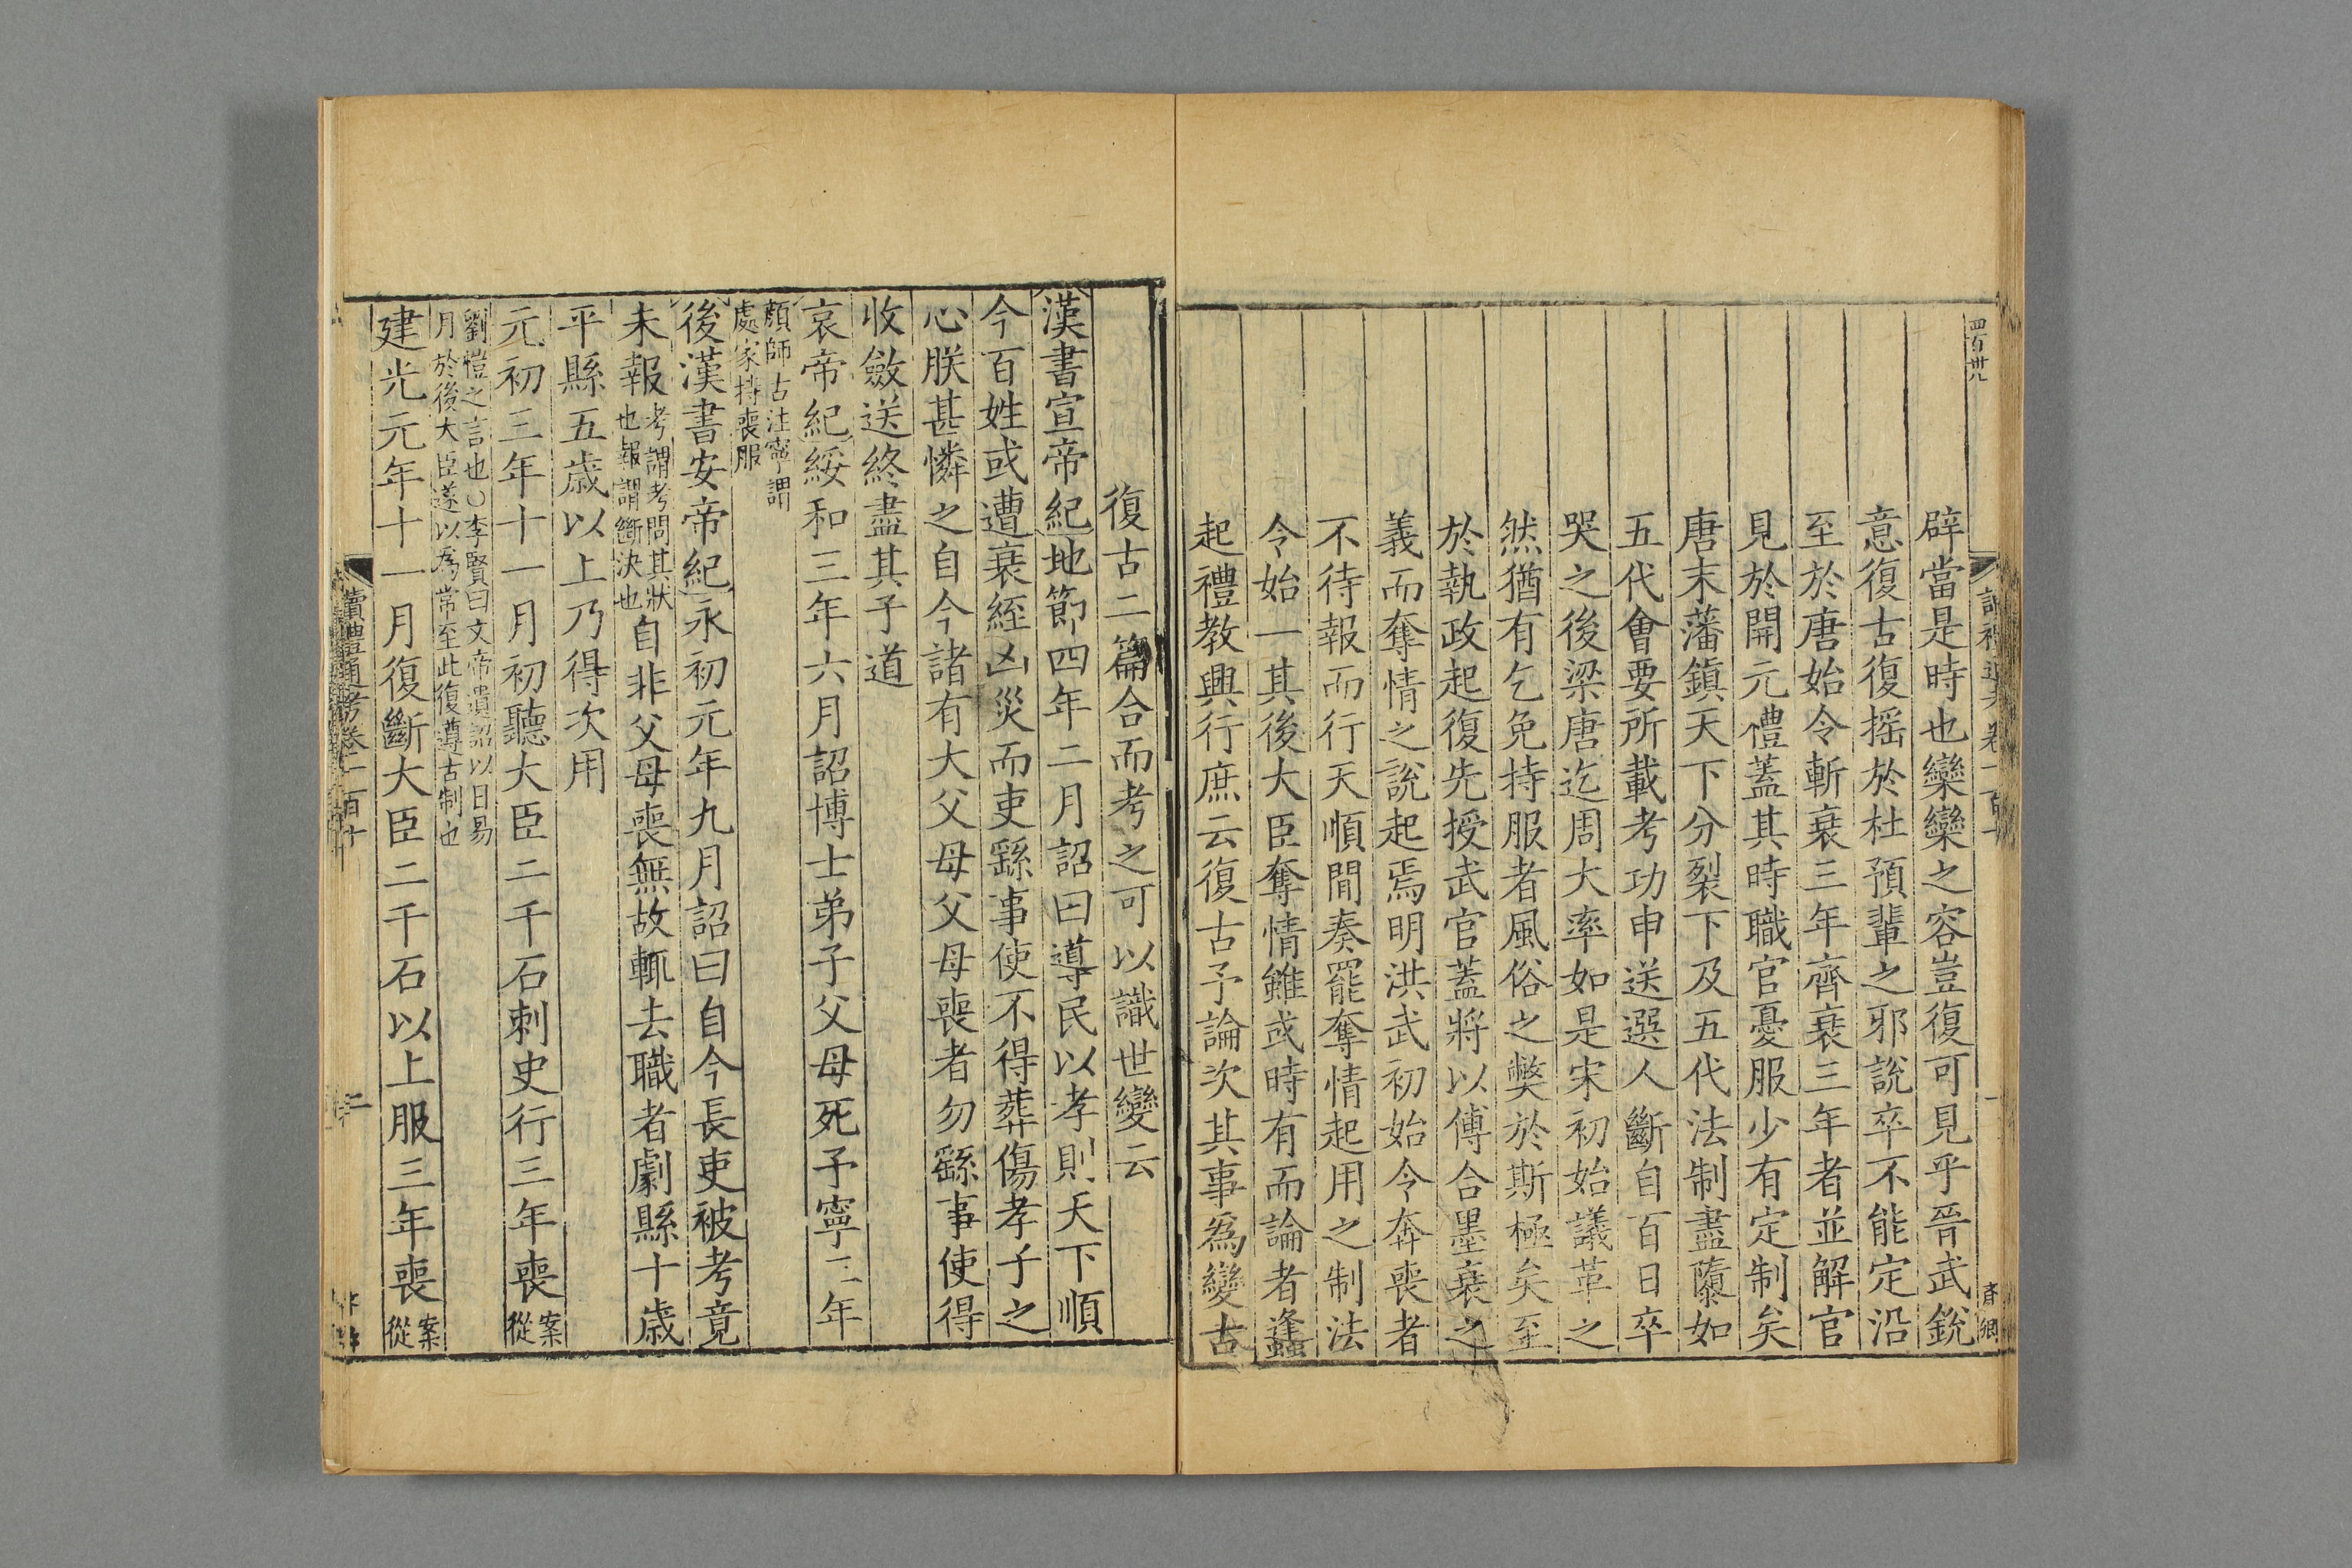 四百卅八
辟當是時也欒欒之容豈復可見乎晉武銳
意復古復搖於杜預輩之邪說卒不能定沿
至於唐始令斬衰三年齊衰三年者並解官
見於開元禮蓋其時職官憂服少有定制矣
唐末藩鎮天下分裂下及五代法制盡隳如
五代會要所載考功申送選人斷自百日卒
哭之後梁唐迄周大率如是宋初始議革之
然猶有乞免持服者風俗之弊於斯極矣至
於執政起復先授武官蓋將以傅合墨衰之
義而奪情之說起焉明洪武初始令奔喪者
不待報而行天順閒奏罷奪情起用之制法
令始一其後大臣奪情雖或時有而論者逢
起禮教興行庶云復古予論次其事為變古
復古二篇合而考之可以識世變云
漢書宣帝紀地節四年二月詔曰導民以孝則天下順
今百姓或遭衰絰凶災而吏繇事使不得葬傷孝子之
心朕甚憐之自今諸有大父母父母喪者勿繇事使得
收斂送終盡其子道
哀帝紀綏和三年六月詔博士弟子父母死予寧三年
顏師古注寧謂
處家持喪服
後漢書安帝紀永初元年九月詔曰自今長吏被考竟
未報考謂考問其狀也報謂斷決也自非父母喪無故輒去職者劇縣十歲
平縣五歲以上乃得次用
元初三年十一月初聽大臣二千石刺史行三年喪案從
劉愷之言也○李賢曰文帝遺詔以日易
月於後大臣遂以為常至此復遵古制也
建光元年十一月復斷大臣二千石以上服三年喪案從
讀禮通考卷一百十
二